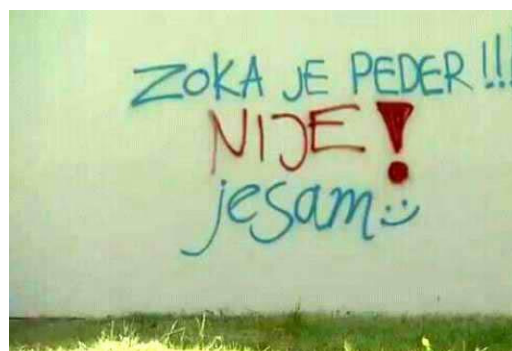 ZOKA JE PEDER!!!
NIJE!
jesam :)